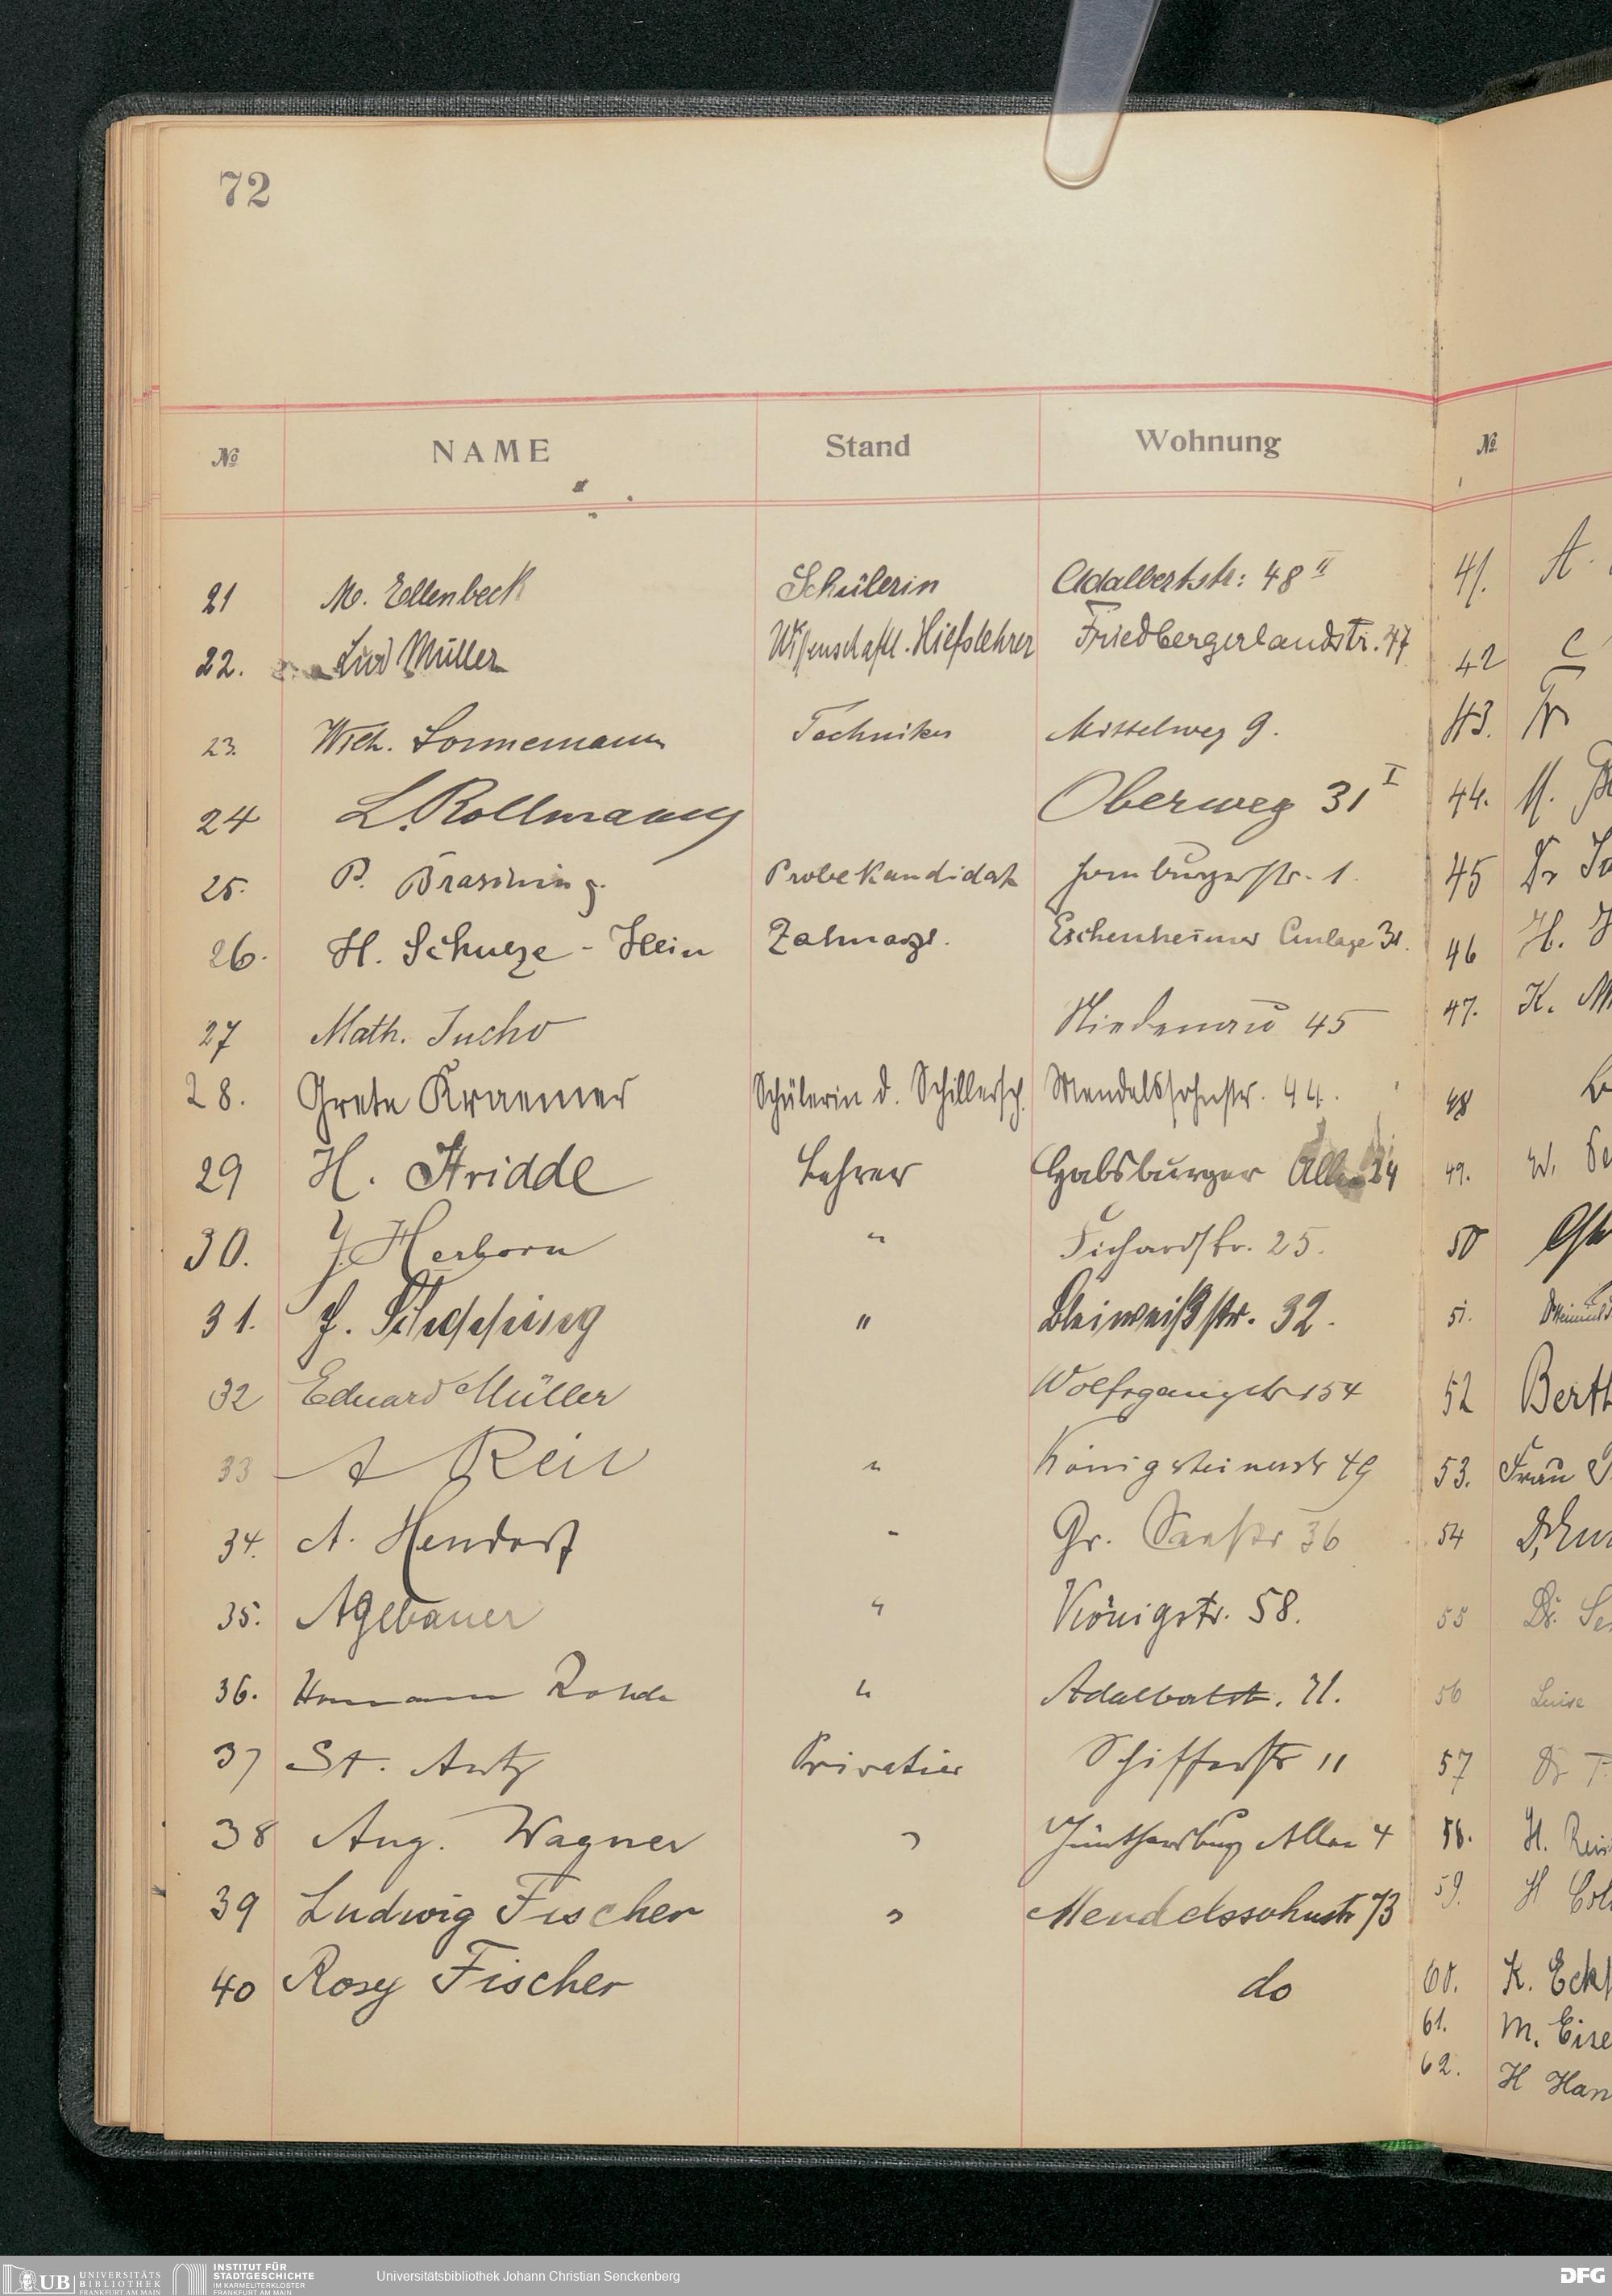 72
№ NAME Stand Wohnung
21 M. Ellenbeck Schülerin Adalbertstr: 48 II
22. Lud Müller Wissenschaftl. Hilfslehrer Friedbergerlandstr. 47
23. Wilh. Sonnemann Techniker Mittelweg 9.
24 L. Rollmann Oberweg 31 I
25. P. Brasching. Probekandidat Homburgerstr. 1.
26. H. Schulze-Hein Zahnarzt. Eschenheimer Anlage 31.
27 Math. Jucho Niedenau 45
28. Grete Kraemer Schülerin d. Schillersch. Mendelssohnstr. 44.
29 H. Stridde Lehrer Habsburger Allee 24
30. J. Herborn " Fichardstr. 25.
31. " Bleiweißstr. 32.
32 Eduard Müller Wolfsgangstr 154
33 A " Königsteinerstr 49
34. A. Hendorf Gr. 36
35. " Königstr. 58.
36. Hermann Rohde " Adalbertstr. 71.
37 St. Antz Privatier Schifferstr 11
38 Aug. Wagner " Günthersburg Allee 4
39 Ludwig Fischer " Mendelssohnstr 73
40 Rosy Fischer do
№
41. A.
42 C
43. Fr
44. M.
45 Dr
46 H.
47. K. M
48
49. W.
50
51.
52 Berth
53. Frau
54
55 Dr. Se
56 Luise
57 Dr
58. H. Rei
59. H
60. K. Eck
61. M. Eise
62. H Han
UB UNIVERSITÄTS BIBLIOTHEK FRANKFURT AM MAIN
INSTITUT FÜR STADTGESCHICHTE IM KARMELITERKLOSTER FRANKFURT AM MAIN
Universitätsbibliothek Johann Christian Senckenberg
DFG